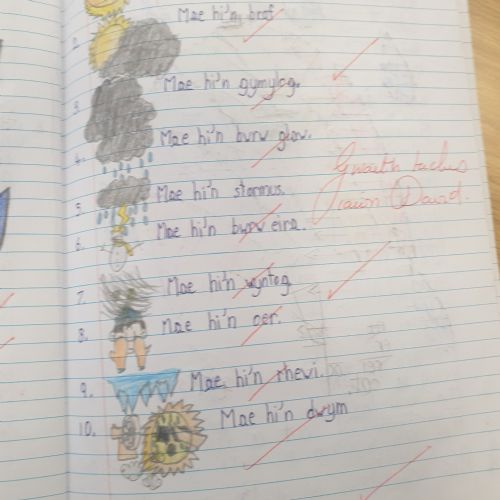 Mae hi'n braf
2.
Mae hi'n gymylog.
3.
Mae hi'n bwrw glaw.
4.
Mae hi'n stormus.
5.
Mae hi'n bwrw eira.
6.
Mae hi'n wyntog.
7.
Mae hi'n oer.
8.
Mae hi'n rhewi.
9.
Mae hi'n dwym
10.
Gwaith taclus
iawn David.